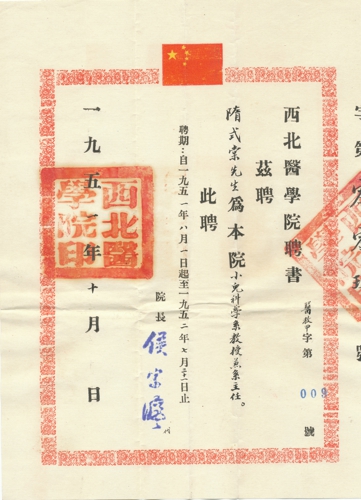 字第
號
醫教甲字第009號
西北醫學院聘書
茲聘
隋式棠先生爲本院小兒科學系教授兼系主任。
此聘
聘期：自一九五一年八月一日起至一九五二年七月三十一日止
院長 侯宗濂
一九五一年十月 日
西北醫學院印